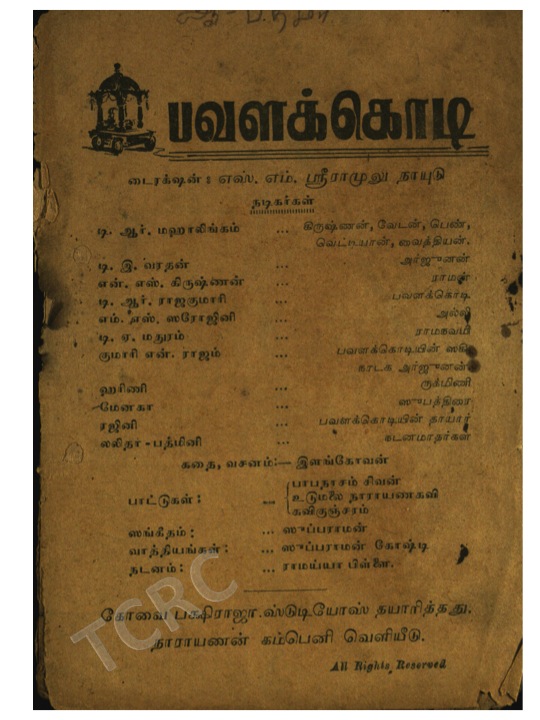 பவளக்கொடி
டைரக்ஷன் : எஸ். எம். ஸ்ரீராமுலு நாயுடு
நடிகர்கள்
டி. ஆர். மஹாலிங்கம் ... கிருஷ்ணன், வேடன், பெண்,
வெட்டியான், வைத்தியன்.
டி. இ. வரதன் ... அர்ஜுனன்
என். எஸ். கிருஷ்ணன் ... ராமன்
டி. ஆர். ராஜகுமாரி ... பவளக்கொடி
எம். எஸ். ஸரோஜினி ... அல்லி
டி. ஏ. மதுரம் ... ராமலக்ஷ்மி
குமாரி என். ராஜம் ... பவளக்கொடியின் ஸகி
நாடக அர்ஜுனன்
ஹரிணி ... ருக்மிணி
மேனகா ... ஸுபத்திரை
ரஜினி ... பவளக்கொடியின் தாயார்
லலிதா - பத்மினி ... நடனமாதர்கள்
கதை, வசனம்:— இளங்கோவன்
பாட்டுகள் : ... பாபநாசம் சிவன்
உடுமலை நாராயணகவி
கவிகுஞ்சரம்
ஸங்கீதம் : ... ஸுப்பராமன்
வாத்தியங்கள் : ... ஸுப்பராமன் கோஷ்டி
நடனம் : ... ராமய்யா பிள்ளை.
கோவை பக்ஷிராஜா ஸ்டுடியோஸ் தயாரித்தது.
நாராயணன் கம்பெனி வெளியீடு.
All Rights Reserved
TCRC